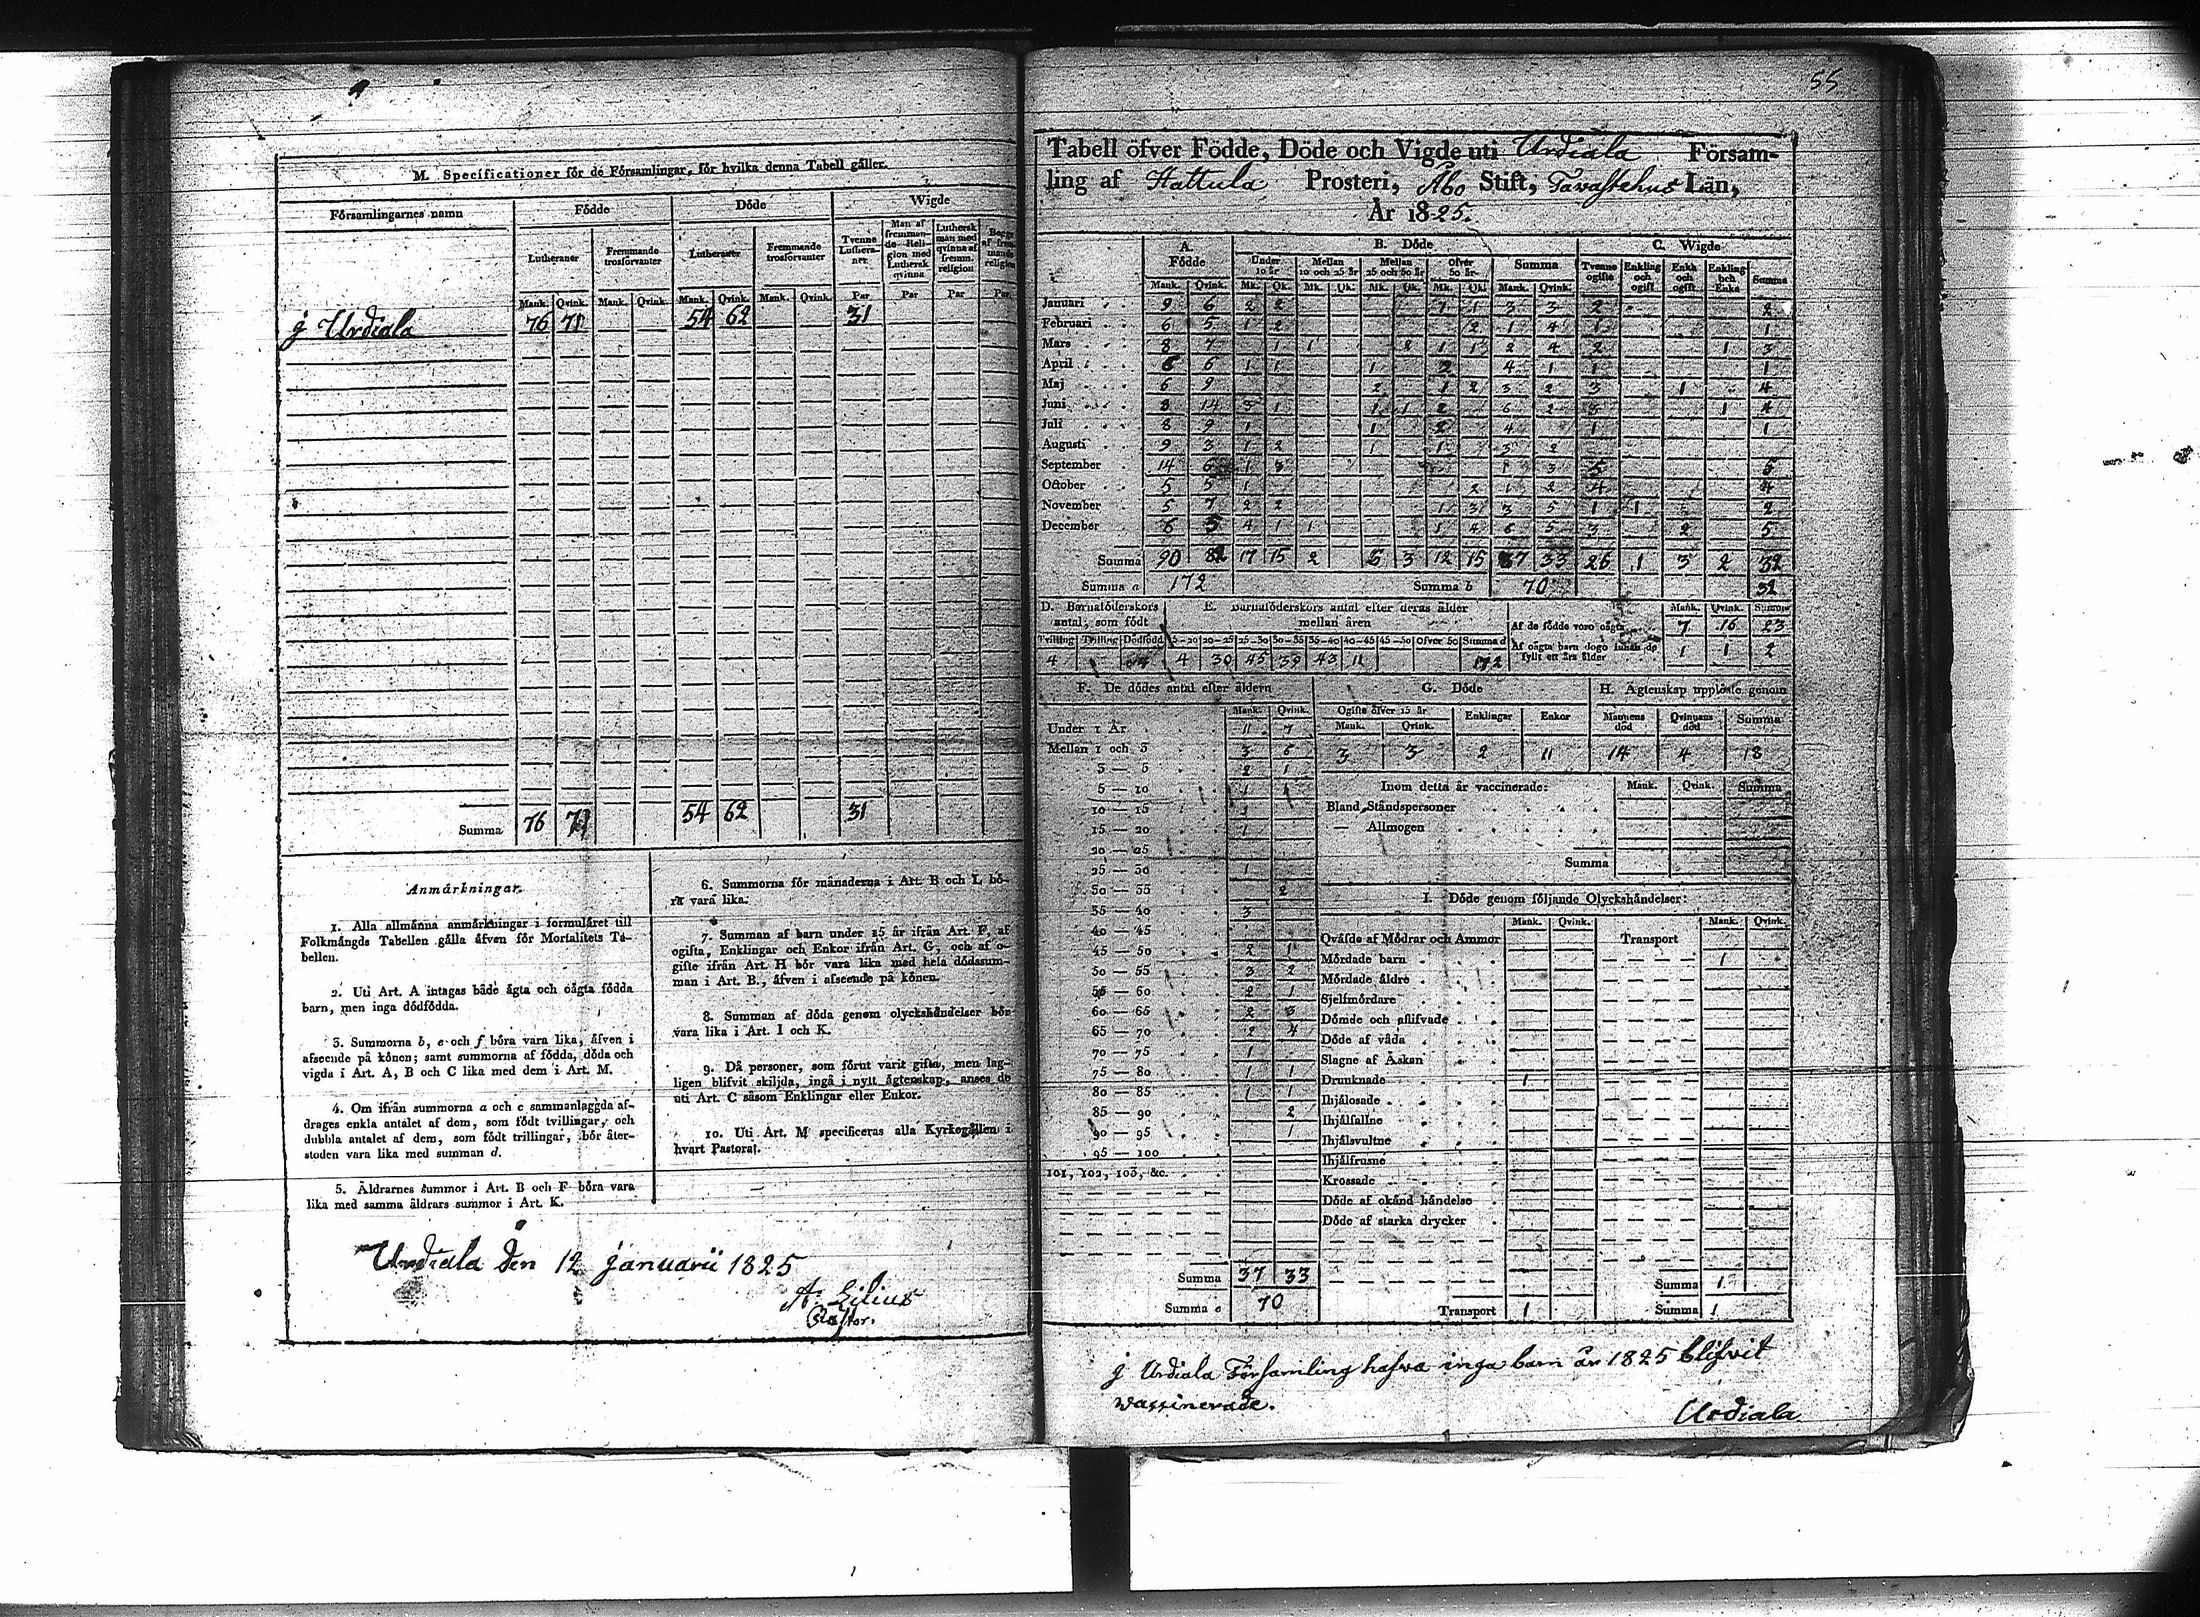 M. Specificationer för de Församlingar, för hvilka denna Tabell gäller.
Församlingarnes namn Födde Döde Wigde
Lutheraner Fremmande trosförvanter Lutheraner Fremmande trosförvanter Tvenne Lutheraner. Man af fremmande Religion med Luthersk qvinna Luthersk man med qvinna af fremm. religion Begge af fremmande religion
Mank. Qvink. Mank. Qvink. Mank. Qvink. Mank. Qvink. Par Par Par Par
j Urdiala 76 71 54 62 31
Summa 76 71 54 62 31
Anmärkningar.
1. Alla allmänna anmärkningar i formuläret till
Folkmängds Tabellen gälla äfven för Mortalitets Ta-
bellen.
2. Uti Art. A intagas både ägta och oägta födda
barn, men inga dödfödda.
3. Summorna b, e och f böra vara lika, äfven i
afseende på könen; samt summorna af födda, döda och
vigda i Art. A, B och C lika med dem i Art. M.
4. Om ifrån summorna a och c sammanlaggda af-
drages enkla antalet af dem, som födt tvillingar, och
dubbla antalet af dem, som födt trillingar, bör åter-
stoden vara lika med summan d.
5. Äldrarnes summor i Art. B och F böra vara
lika med samma äldrars summor i Art. K.
6. Summorna för månaderna i Art. B och L bö-
ra vara lika.
7. Summan af barn under 15 år ifrån Art. F, af
ogifta, Enklingar och Enkor ifrån Art. G, och af o-
gifte ifrån Art. H bör vara lika med hela dödssum-
man i Art. B., äfven i afseende på könen.
8. Summan af döda genom olyckshändelser bör
vara lika i Art. I och K.
9. Då personer, som förut varit gifta, men lag-
ligen blifvit skiljda, ingå i nytt ägtenskap, anses de
uti Art. C såsom Enklingar eller Enkor.
10. Uti Art. M specificeras alla Kyrkogällen i
hvart Pastorat.
Urdiala den 12 Januarii 1825
A. Lilius
Pastor.
55
Tabell öfver Födde, Döde och Vigde uti Urdiala Försam-
ling af Hattula Prosteri, Åbo Stift, Tavastehus Län,
År 1825.
A. Födde B. Döde C. Wigde
Under 10 år Mellan 10 och 25 år Mellan 25 och 50 år Öfver 50 år Summa Tvenne ogifte Enkling och ogift Enka och ogift Enkling och Enka Summa
Mank. Qvink. Mk. Qk. Mk. Qk. Mk. Qk. Mk. Qk. Mank. Qvink.
Januari 9 6 2 2 1 1 3 3 2 2
Februari 6 5 1 2 2 1 4 1 1
Mars 8 7 1 1 2 1 1 2 4 2 1 3
April 6 6 1 1 1 2 4 1 1 1
Maj 6 9 2 1 2 3 2 3 1 4
Juni 8 14 3 1 1 1 2 6 2 3 1 4
Juli 8 9 1 1 2 4 1 1
Augusti 9 3 1 2 1 1 3 2
September 14 6 1 3 1 3 5 5
October 5 5 1 2 1 2 4 4
November 5 7 2 2 1 3 3 5 1 1 2
December 6 5 4 1 1 1 4 6 5 3 2 5
Summa 90 82 17 15 2 6 3 12 15 37 33 26 1 3 2 32
Summa a 172 Summa b 70 32
D. Barnaföderskors antal, som födt
Tvilling Trilling Dödfödd
4
E. Barnaföderskors antal efter deras ålder mellan åren
15-20 20-25 25-30 30-35 35-40 40-45 45-50 Öfver 50 Summa d
4 30 45 39 43 11 172
Mank. Qvink. Summa
Af de födde voro oägta 7 16 23
Af oägta barn dogo innan de fyllt ett års ålder 1 1 2
F. De dödes antal efter åldern
Mank. Qvink.
Under 1 År 11 7
Mellan 1 och 3 3 6
3 — 5 2 1
5 — 10 1 1
10 — 15 1
15 — 20 1
20 — 25
25 — 30 1
30 — 35 2
35 — 40 3
40 — 45
45 — 50 2 1
50 — 55 3 2
55 — 60 2 1
60 — 65 2 3
65 — 70 2 4
70 — 75 1
75 — 80 1 1
80 — 85 1 1
85 — 90 2
90 — 95 1
95 — 100
101, 102, 103, &c.
Summa 37 33
Summa e 70
G. Döde
Ogifte öfver 15 år Enklingar Enkor
Mank. Qvink.
3 3 2 11
H. Ägtenskap upplöste genom
Mannens död Qvinnans död Summa
14 4 18
Inom detta år vaccinerade: Mank. Qvink. Summa
Bland Ståndspersoner
— Allmogen
Summa
I. Döde genom följande Olyckshändelser:
Mank. Qvink. Mank. Qvink.
Qväfde af Mödrar och Ammor Transport
Mördade barn 1
Mördade äldre
Sjelfmördare
Dömde och aflifvade
Döde af våda
Slagne af Åskan
Drunknade 1
Ihjälosade
Ihjälfallne
Ihjälsvultne
Ihjälfrusne
Krossade
Döde af okänd händelse
Döde af starka drycker
Summa 1
Transport 1 Summa 1
j Urdiala Församling hafva inga barn år 1825 blifvit
waxinerade.
Urdiala